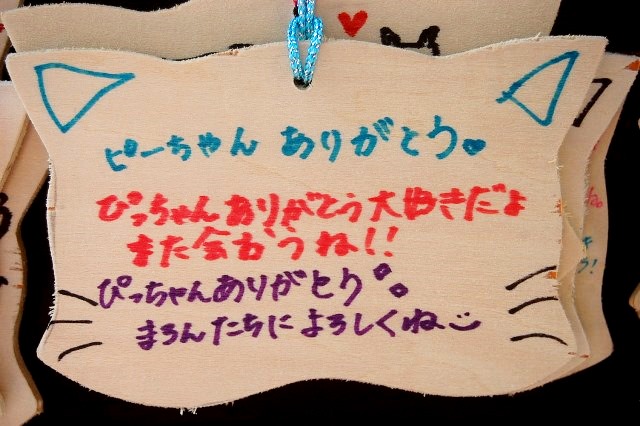 ピーちゃん ありがとう
ぴっちゃんありがとう大好きだよ
また会おうね!!
ぴっちゃんありがとう
まろんたちによろしくね